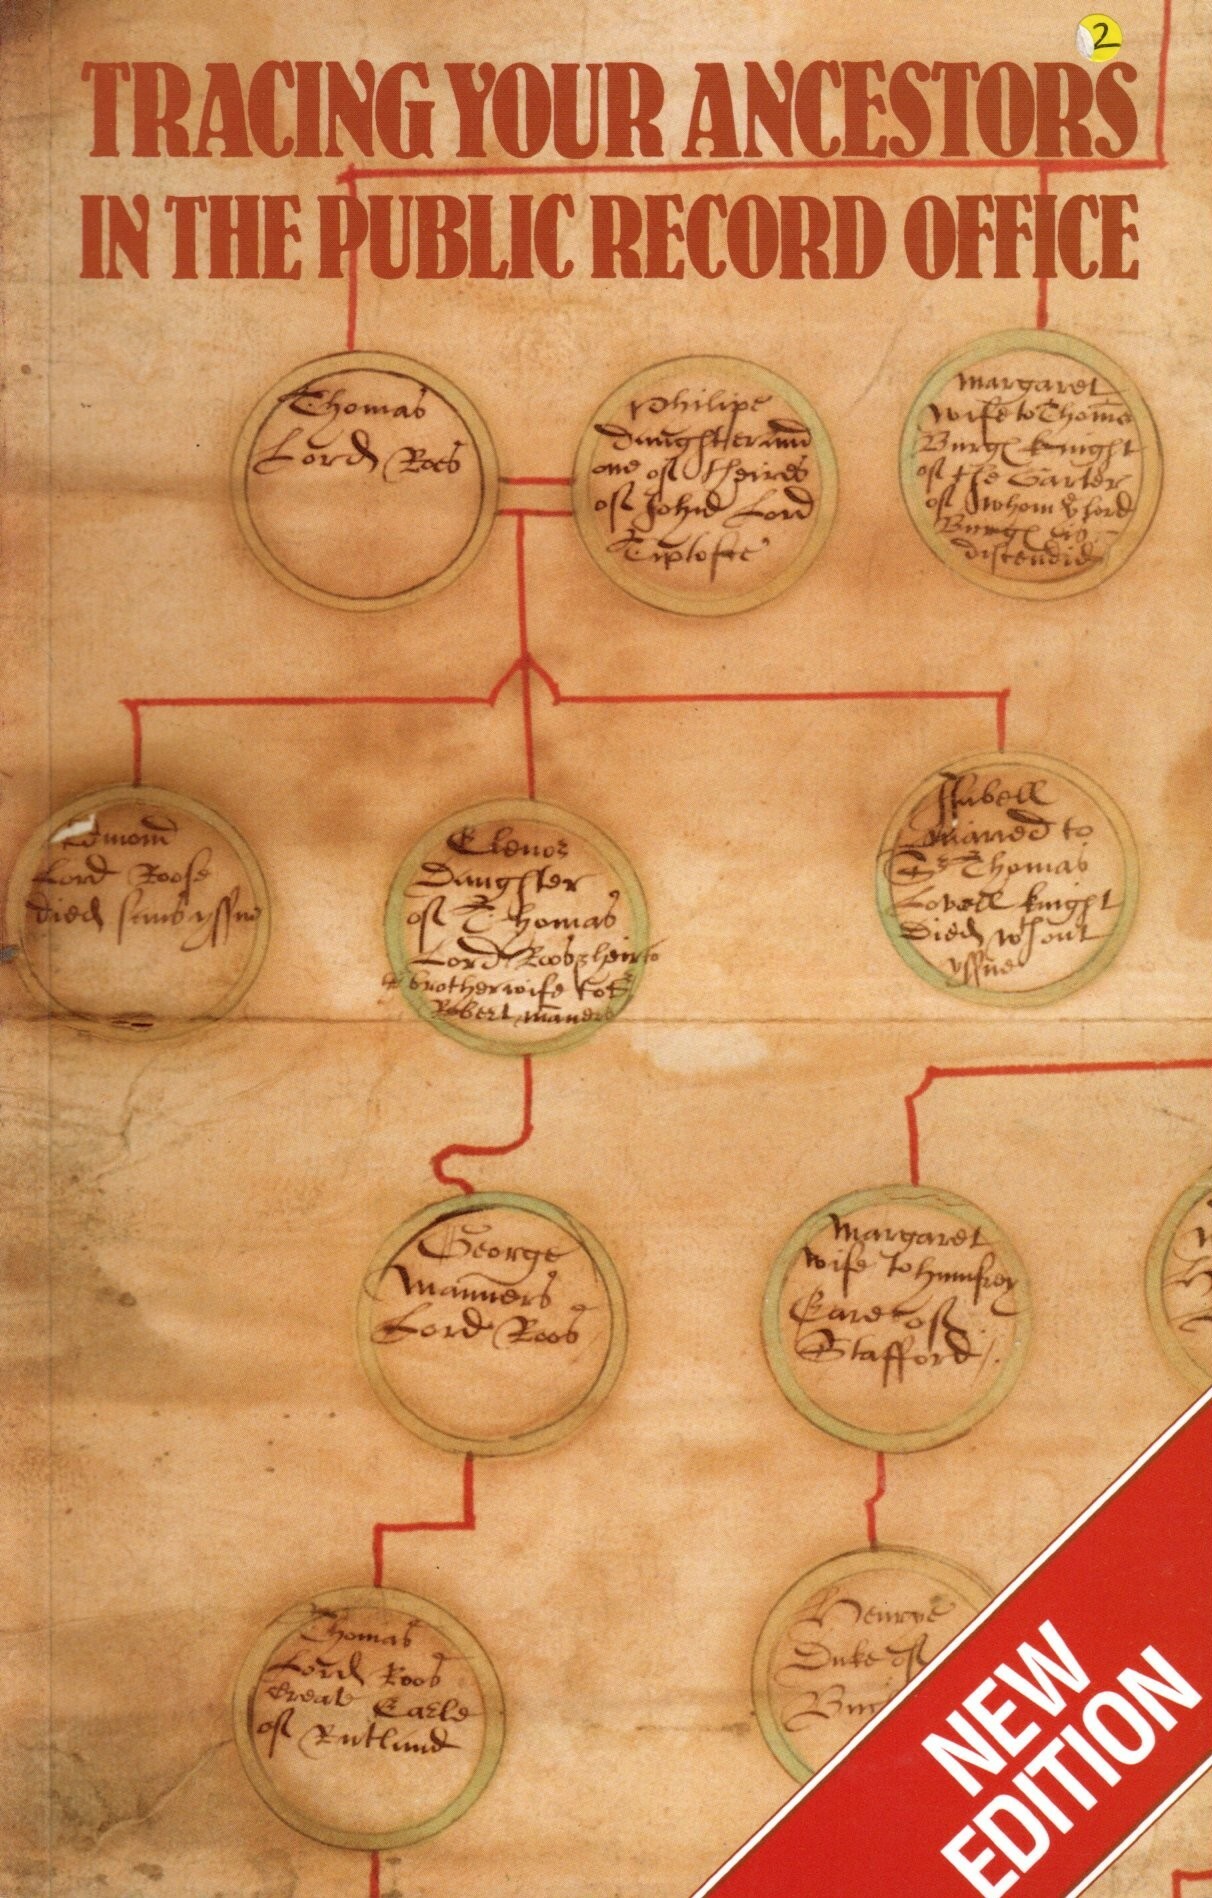 2
TRACING YOUR ANCESTORS
IN THE PUBLIC RECORD OFFICE
Thomas
Lord Roos
Philipe
Daughter and
one of theires
of John Lord
Tiptofte
Margaret
wife to Thoms
Burgh knight
of the Garter
of whom y lord
Burgh is
discendid
Edmond
Lord Roose
died sans yssue
Elenor
Daughter
of Thomas
Lord Roos & heir to
brother wife to Sr
Robert maners
Isabell
maried to
Sr Thomas
Lovell knight
Died wthout
yssue
George
Manners
Lord Roos
Margaret
wife to Humfrey
Earle of
Stafford
Thomas
Lord Roos
Creat Earle
of Rutland
Henrye
Duke of
Buc
NEW
EDITION